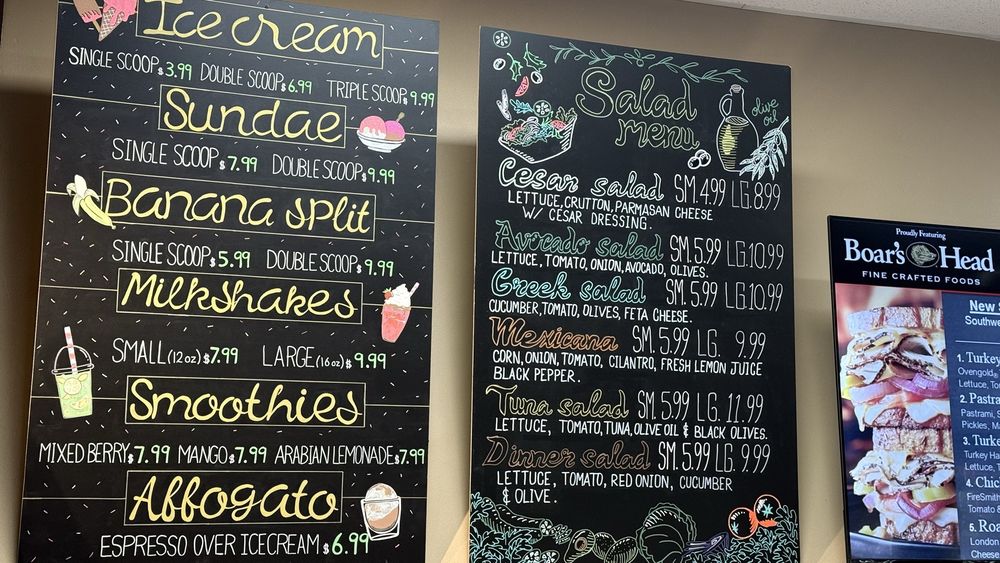 Ice cream
SINGLE SCOOP $3.99 DOUBLE SCOOP $6.99 TRIPLE SCOOP $9.99
Sundae
SINGLE SCOOP $7.99 DOUBLE SCOOP $9.99
Banana split
SINGLE SCOOP $5.99 DOUBLE SCOOP $9.99
Milkshakes
SMALL (12 oz) $7.99 LARGE (16 oz) $9.99
Smoothies
MIXED BERRY $7.99 MANGO $7.99 ARABIAN LEMONADE $7.99
Affogato
ESPRESSO OVER ICECREAM $6.99
Salad
menu
olive
oil
Cesar salad SM. 4.99 LG. 8.99
LETTUCE, CRUTTON, PARMASAN CHEESE
W/ CESAR DRESSING.
Avocado salad SM. 5.99 LG. 10.99
LETTUCE, TOMATO, ONION, AVOCADO, OLIVES.
Greek salad SM. 5.99 LG. 10.99
CUCUMBER, TOMATO, OLIVES, FETA CHEESE.
Mexicana SM. 5.99 LG. 9.99
CORN, ONION, TOMATO, CILANTRO, FRESH LEMON JUICE
BLACK PEPPER.
Tuna salad SM. 5.99 LG. 11.99
LETTUCE, TOMATO, TUNA, OLIVE OIL & BLACK OLIVES.
Dinner salad SM. 5.99 LG. 9.99
LETTUCE, TOMATO, RED ONION, CUCUMBER
& OLIVE.
Proudly Featuring
Boar's Head
FINE CRAFTED FOODS
New
Southwe
1. Turkey
Ovengold®
Lettuce, To
2. Pastra
Pastrami,
Pickles, M
3. Turke
Turkey Ha
Lettuce,
4. Chic
FireSmith
Tomato &
5. Roa
London
Cheese,